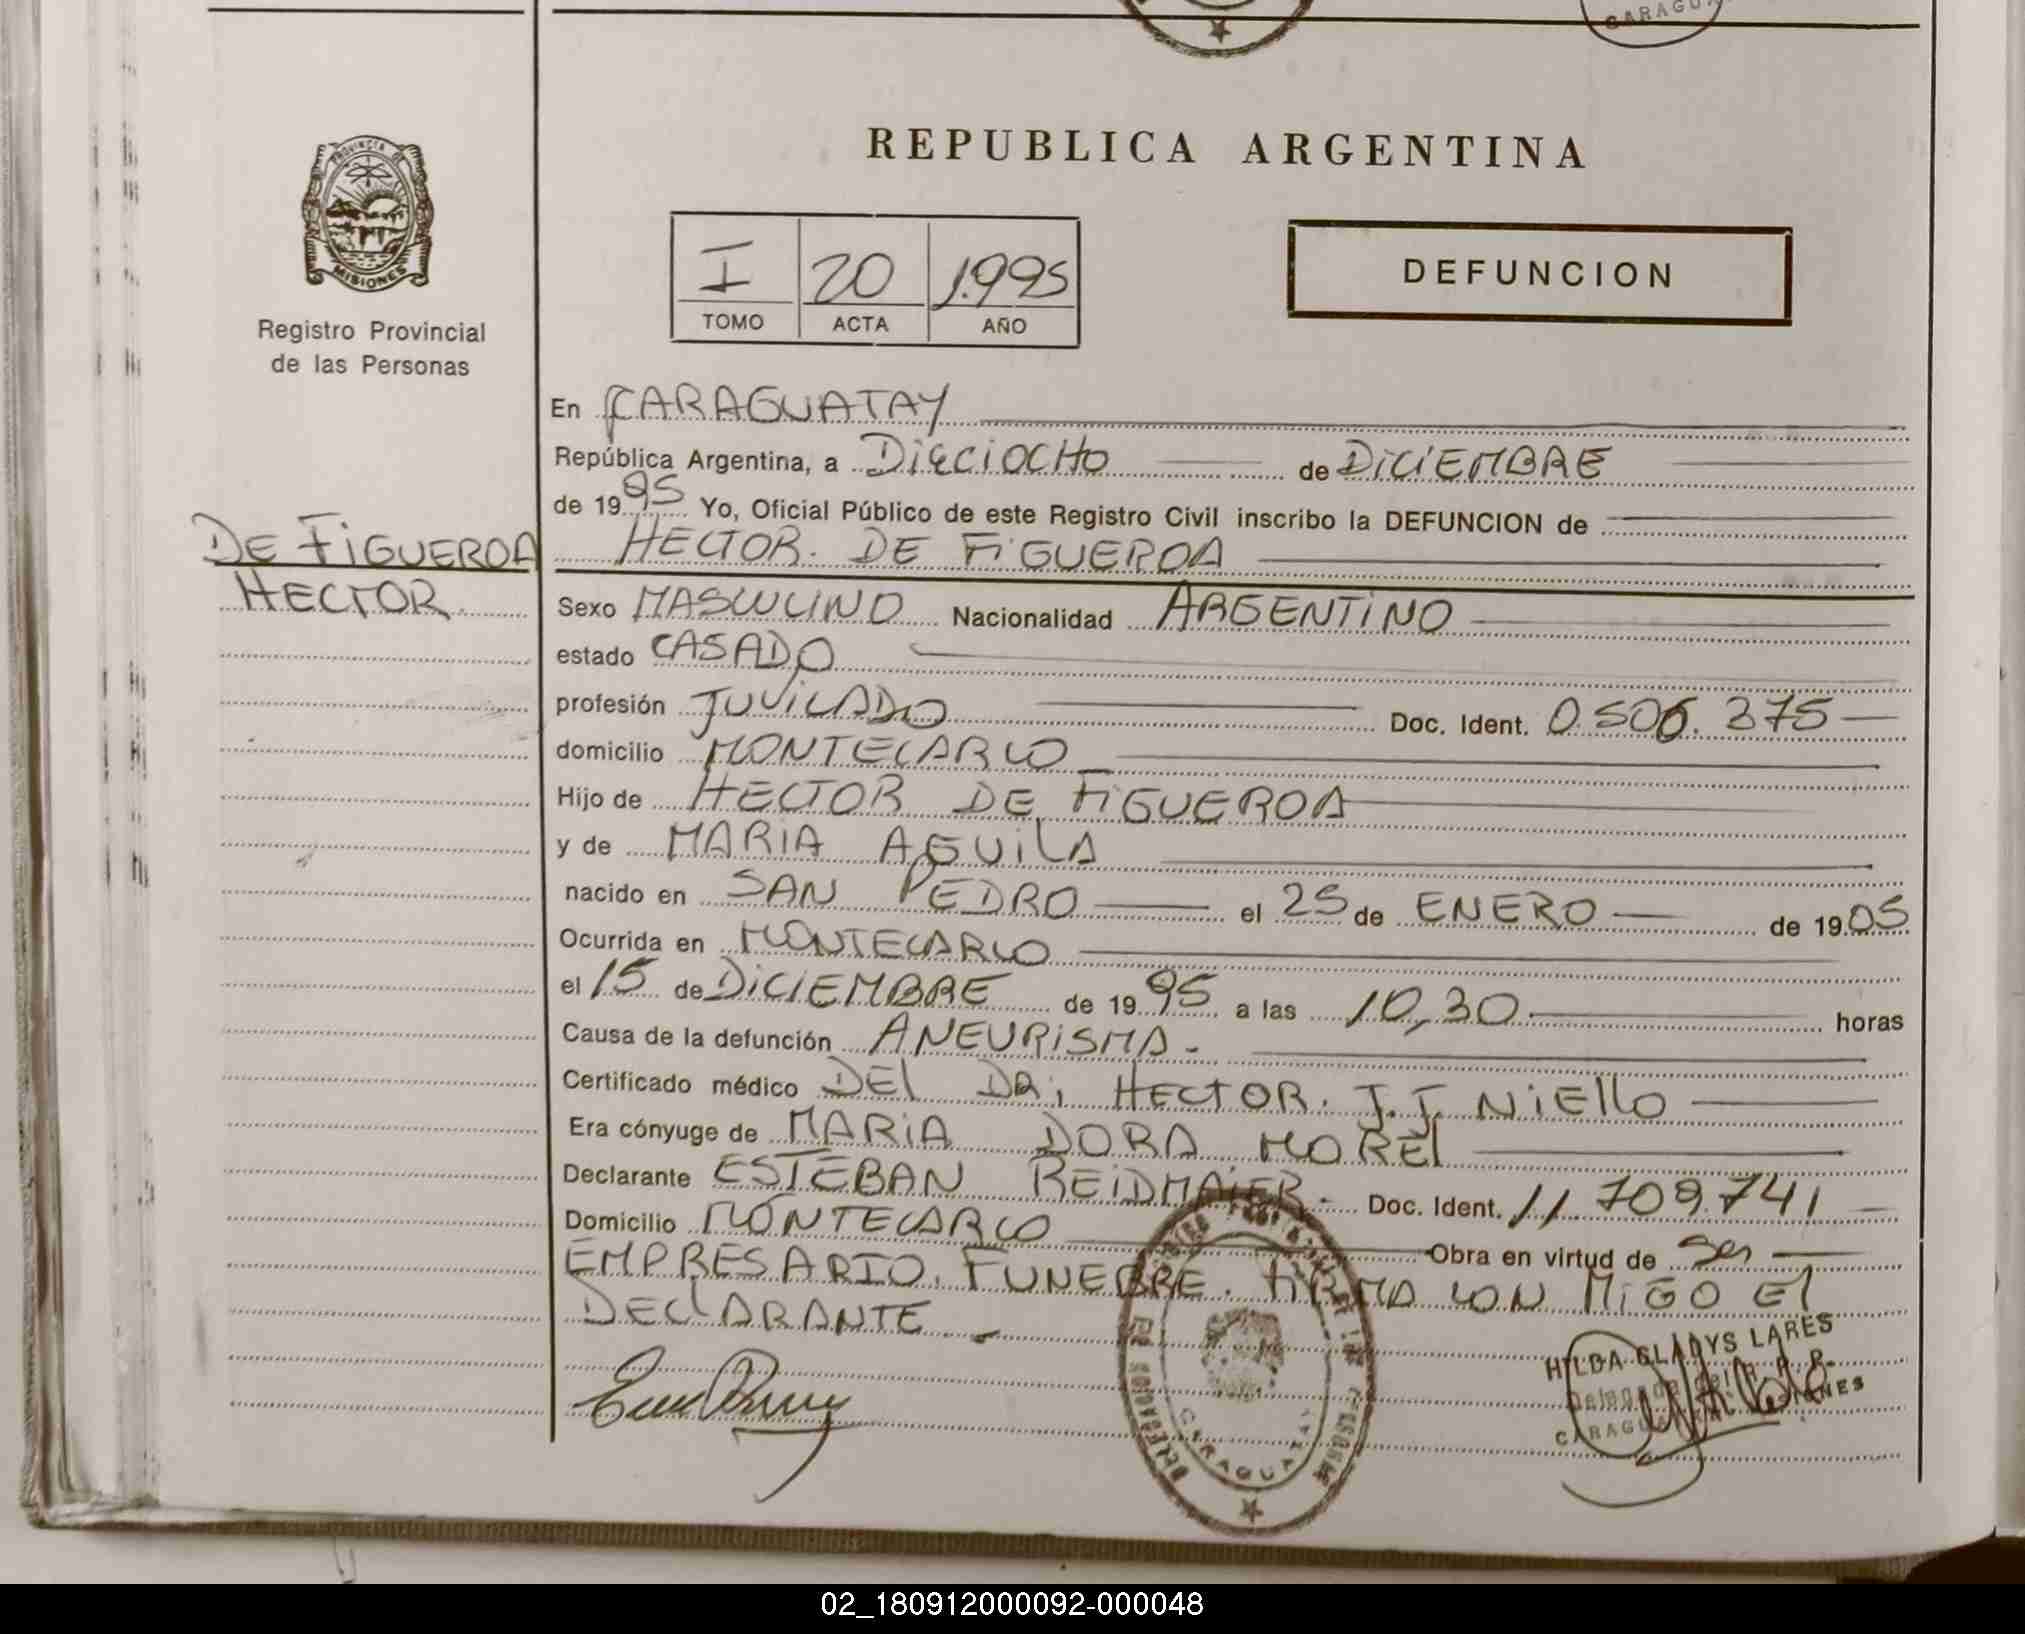 CARAGUA
PROVINCIA DE
MISIONES
Registro Provincial
de las Personas
REPUBLICA ARGENTINA
I 20 1.995
TOMO ACTA AÑO
DEFUNCION
En CARAGUATAY
República Argentina, a DiECiOCHO de DiCiEMBRE
de 19 95 Yo, Oficial Público de este Registro Civil inscribo la DEFUNCION de
DE FiGUEROA HECTOR. DE FiGUEROA
HECTOR. Sexo MASCULINO Nacionalidad ARGENTiNO
estado CASADO
profesión JUViLADO Doc. Ident. 0.506.375
domicilio MONTECARLO
Hijo de HECTOR DE FiGUEROA
y de MARiA AGUiLA
nacido en SAN PEDRO el 25 de ENERO de 19 05
Ocurrida en MONTECARLO
el 15 de DiCiEMBRE de 19 95 a las 10,30 horas
Causa de la defunción ANEURiSMA.-
Certificado médico DEl DR; HECTOR. J.J. NiEllO
Era cónyuge de MARiA DORA MOREl
Declarante ESTEBAN REiDMAiER.- Doc. Ident. 11.709.741
Domicilio MONTECARLO Obra en virtud de Ser
EMPRESARIO. FUNEBRE. FiRMA CON MiGO El
DEClARANTE.-
HILDA GLADYS LARES
Delegada del R. P. P.
CARAGUATAY MISIONES
CARAGUATAY
02_180912000092-000048